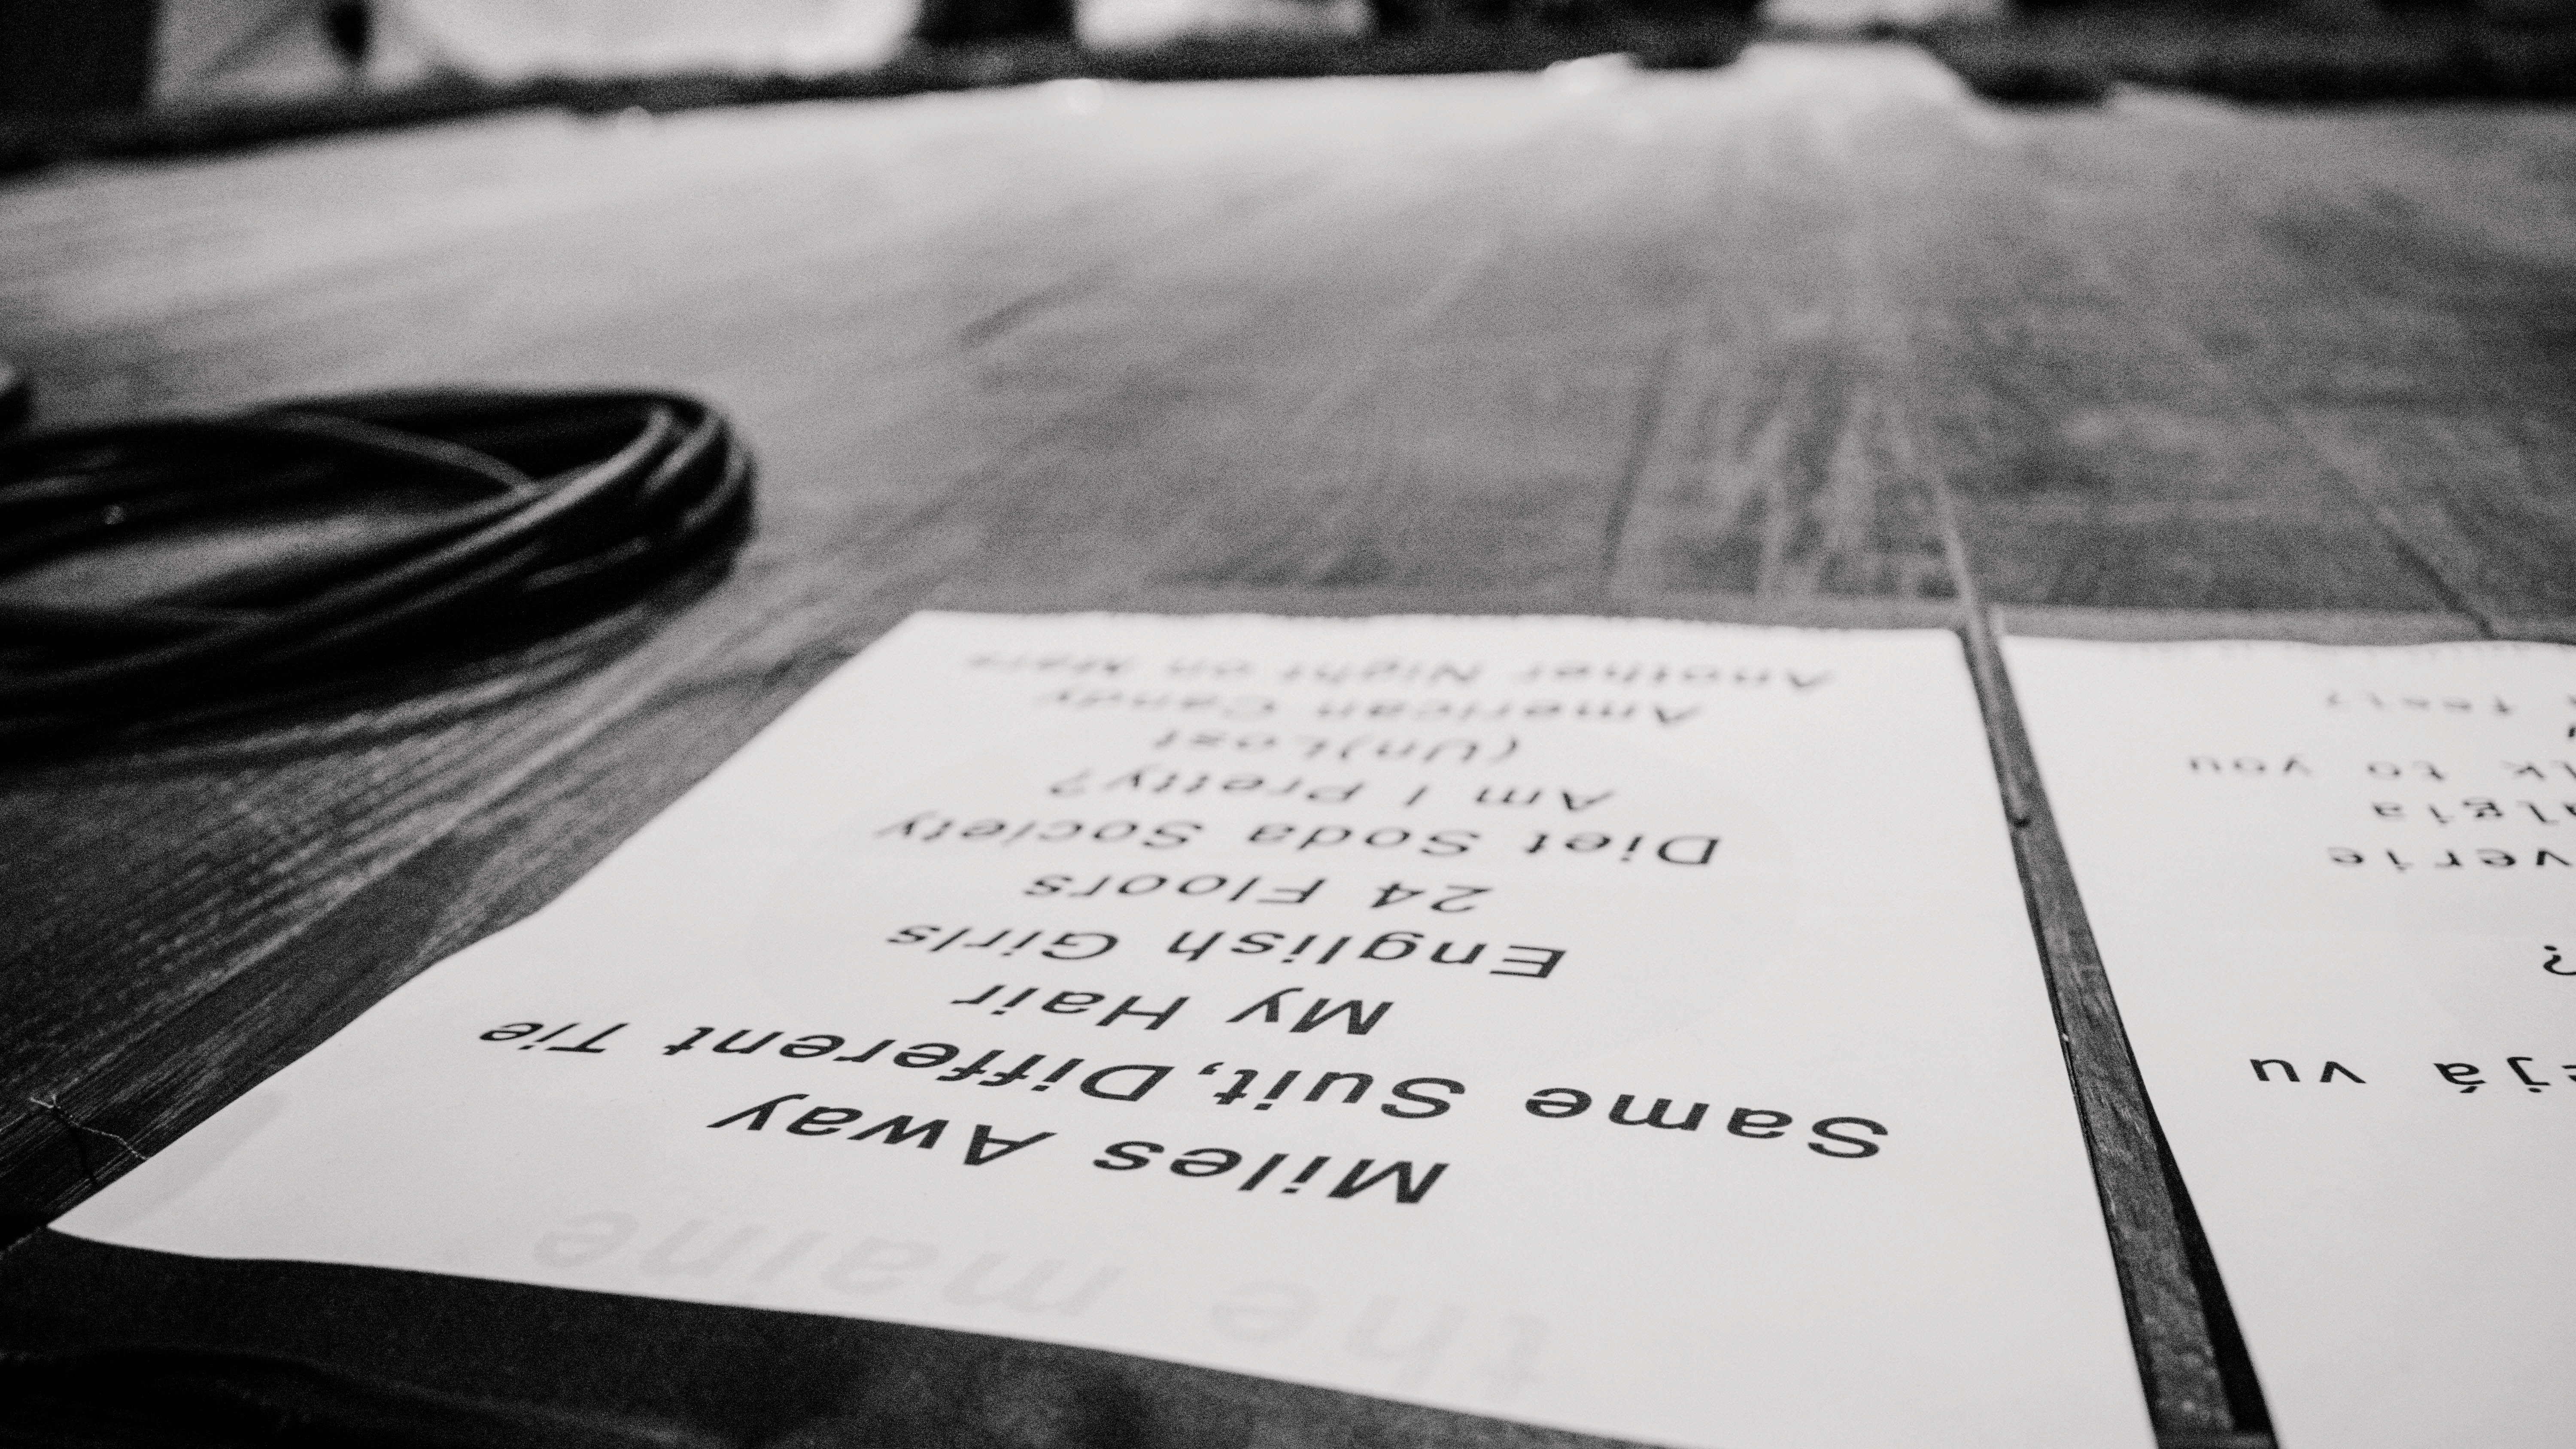 the maine
Miles Away
Same Suit, Different Tie
My Hair
English Girls
24 Floors
Diet Soda Society
Am I Pretty?
(Un)Lost
American Candy
Another Night on Mars
ejá vu
?
verie
lgia
lk to you
feel?